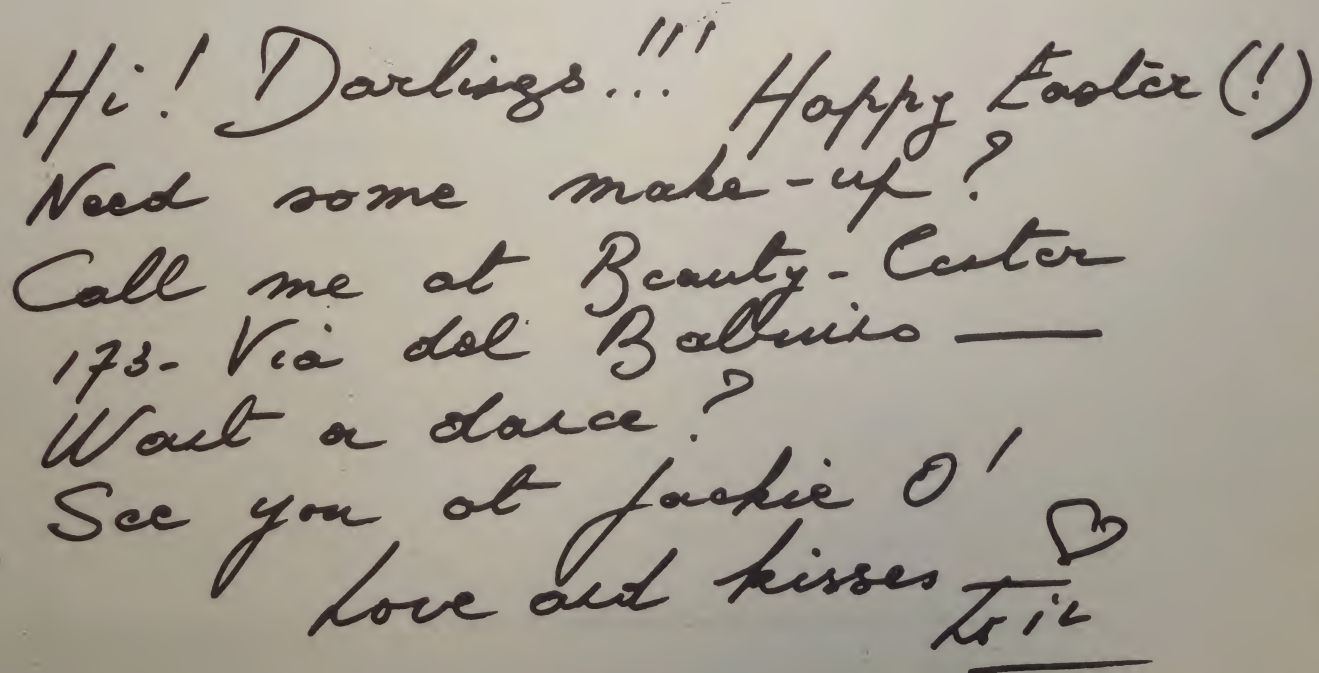 Hi! Darlings...!!! Happy Easter (!)
Need some make-up?
Call me at Beauty-Center
173- Via del Babuino —
Want a dance?
See you at Jackie O'
Love and kisses